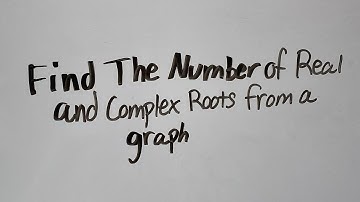 Find The Number of Real
and Complex Roots from a
graph